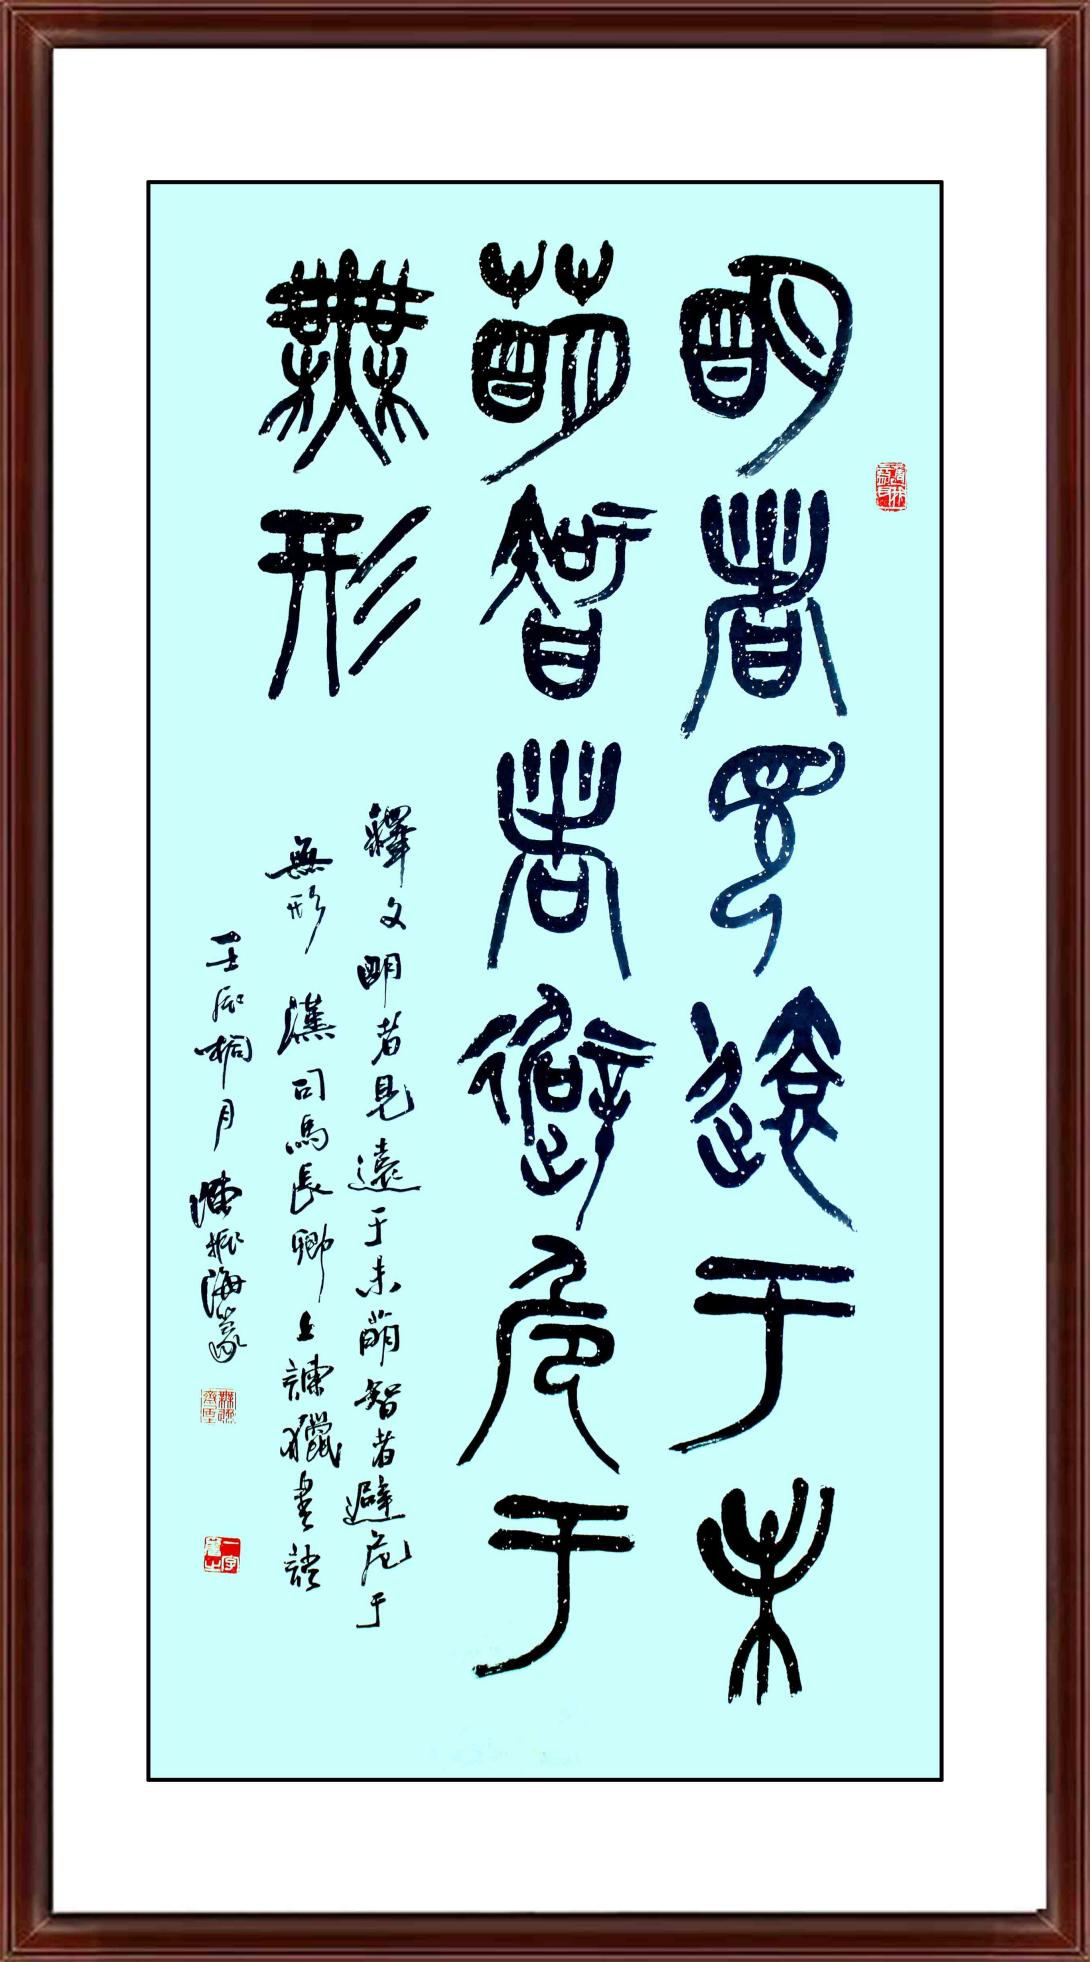 明者見遠于未
萌智者避危于
無形
釋文明者見遠于未萌智者避危于
無形 漢司馬長卿上諫獵書語
壬辰桐月陳振海篆